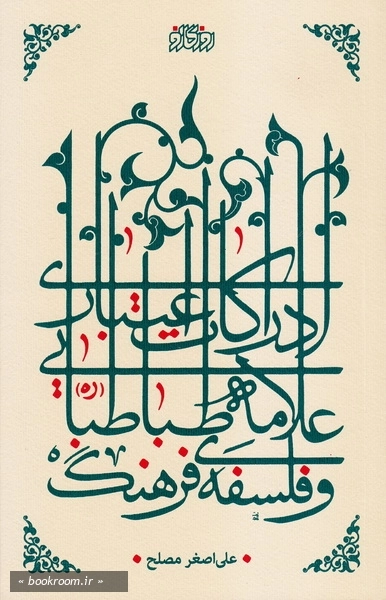 روزگارنو
ادراکات اعتباری
علامه طباطبایی (ره)
و فلسفه‌ی فرهنگ
علی‌اصغر مصلح
« bookroom.ir »